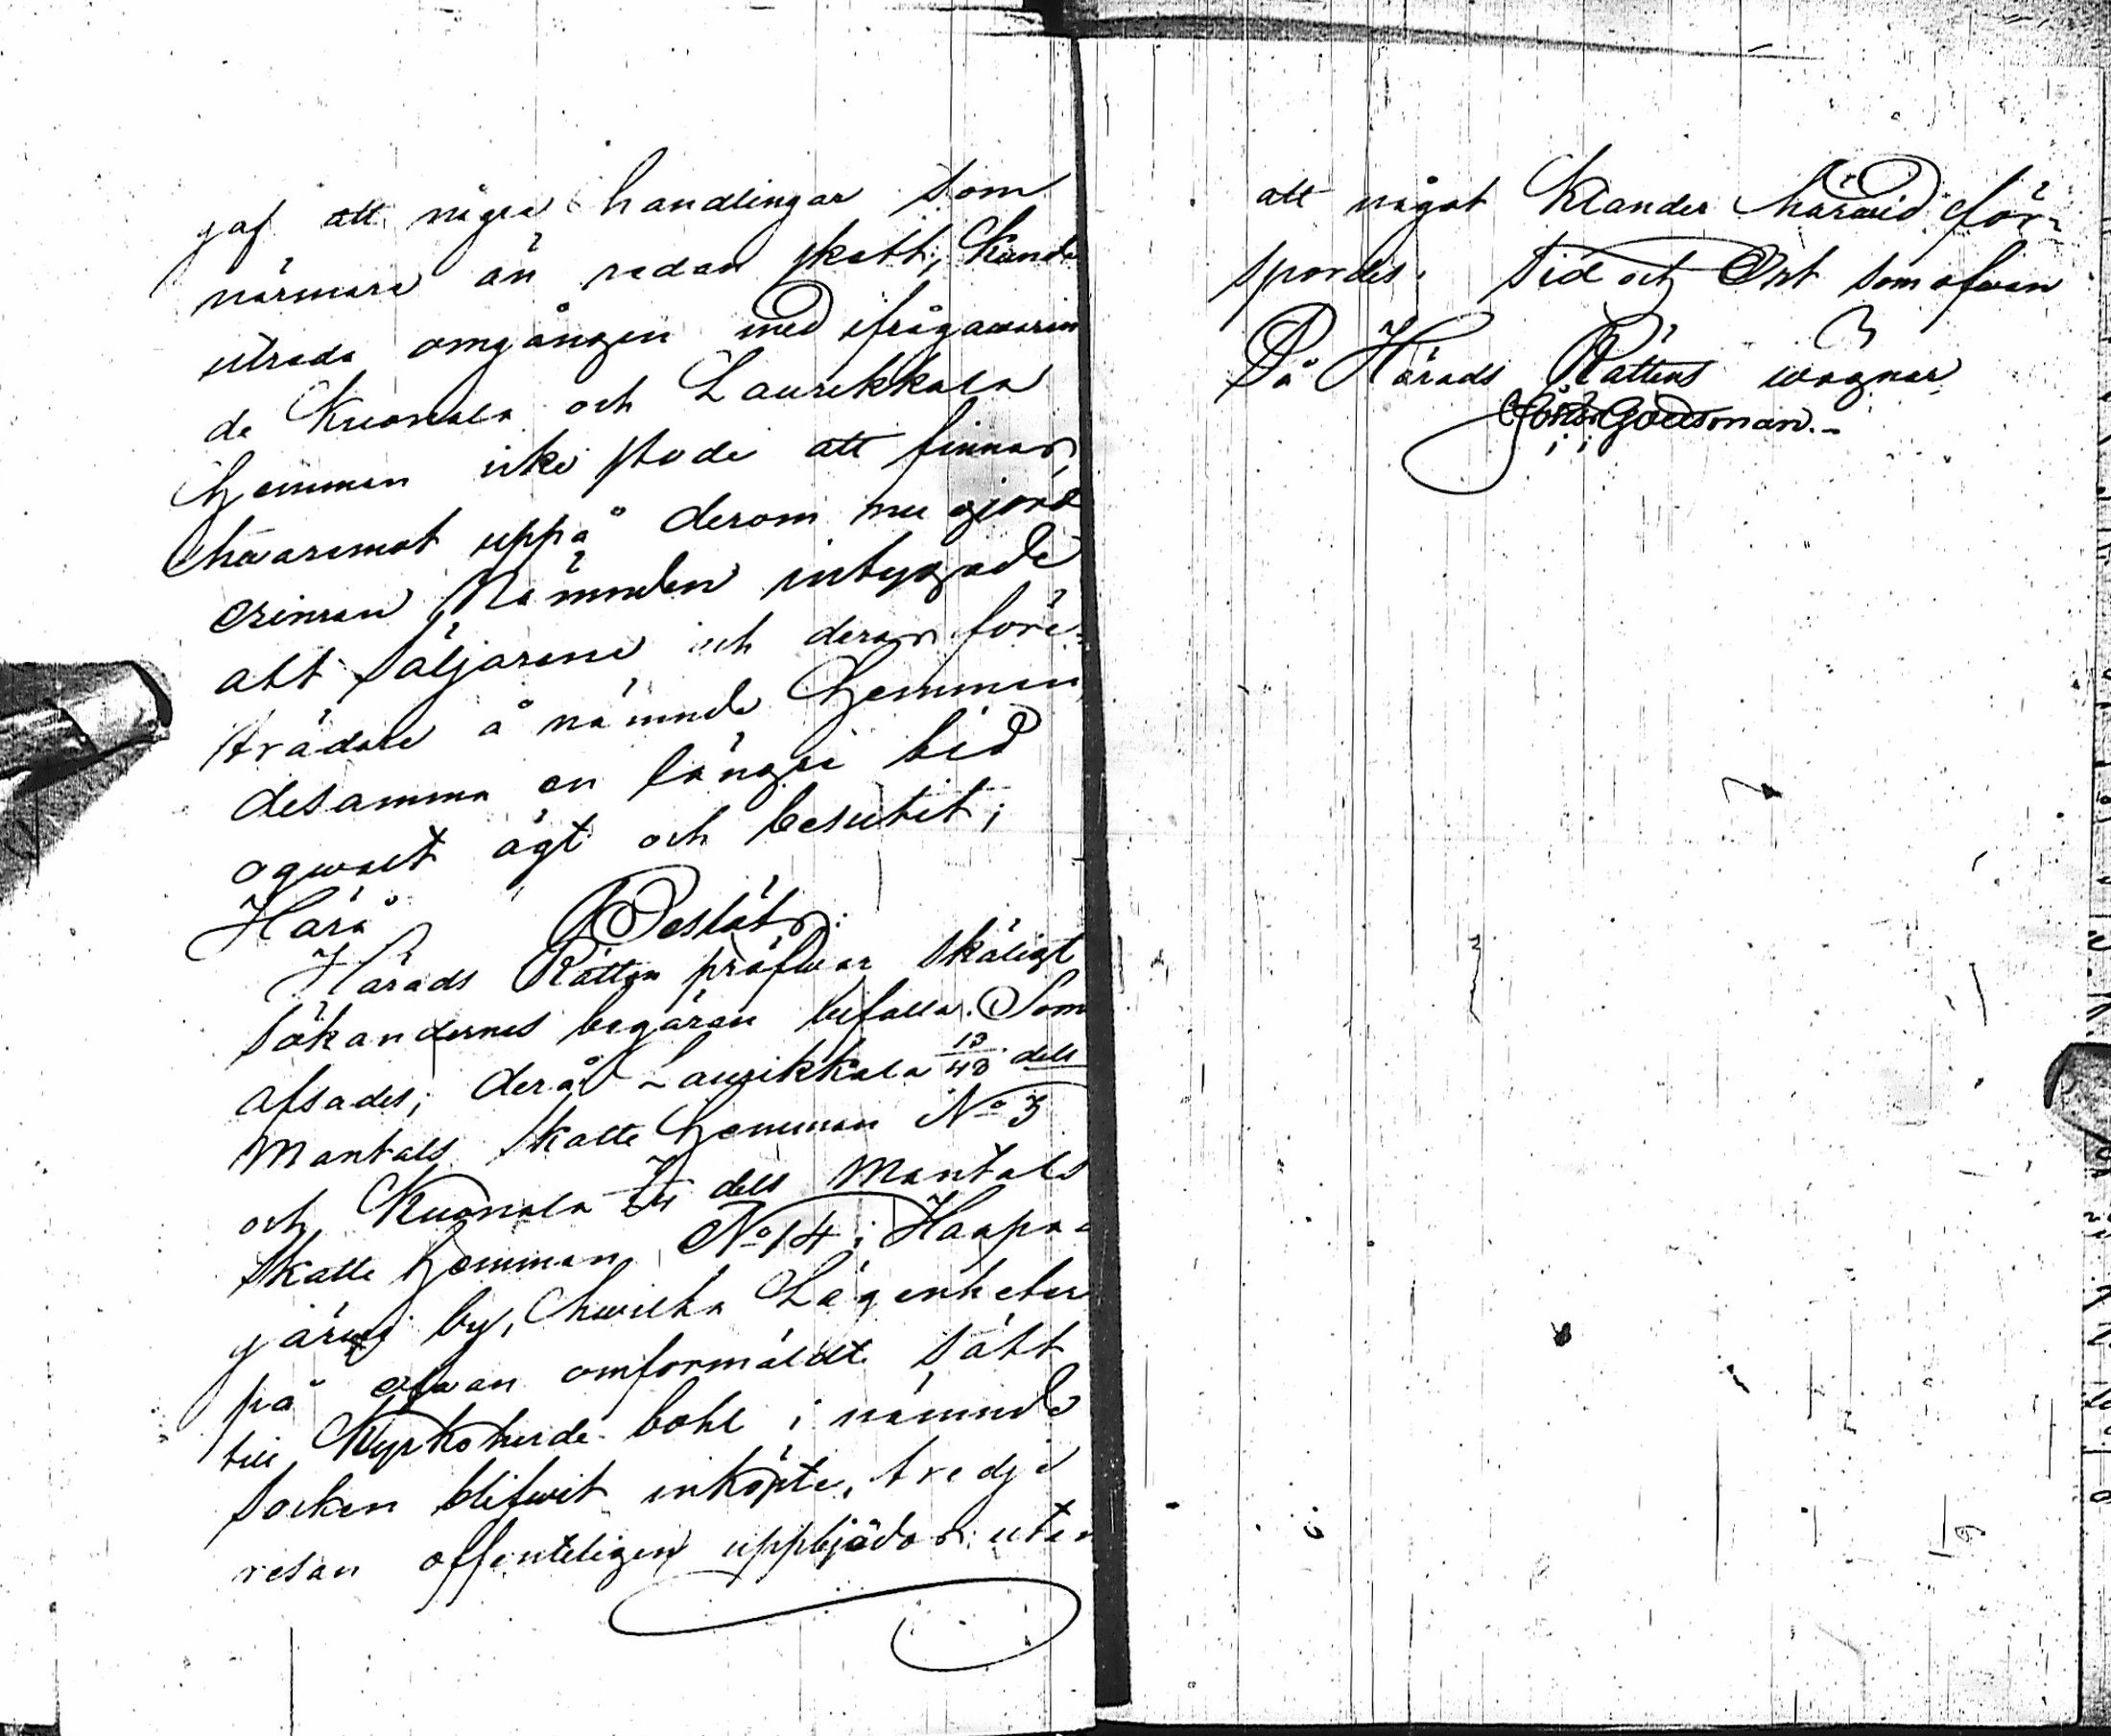 gaf att några handlingar som
närmare än redan skett, kunde
utreda omgången med ifrågawarin
de Kuonala och Laurikkala
hemman icke stode att finnas,
hwaremot uppå derom nu gjord
erinran Nämnden intygade
att Säljarene och deras före-
trädare å nämnde hemman
desamma en längre tid
oqwalt ägt och besutit;
Härå Reslots:
Härads Rätten pröfwar skäligt
Sökandernes begäran bifalla. Som
afsades; derå Laurikkala dels
Mantals Skatte hemman No 3
och Kuonala dels Mantals
Skatte hemman No 14 i Haapa-
järwi by, hwilka Lägenheter
på ofwan omformäldte sätt
till Kyrkoherde bohl i nämnde
Socken blifwit inköpte, tredje
resan offenteligen uppbjödos utan
att något Klander härwid för-
spordes. Tid och Ort som ofwan
På Härads Rättens wägnar